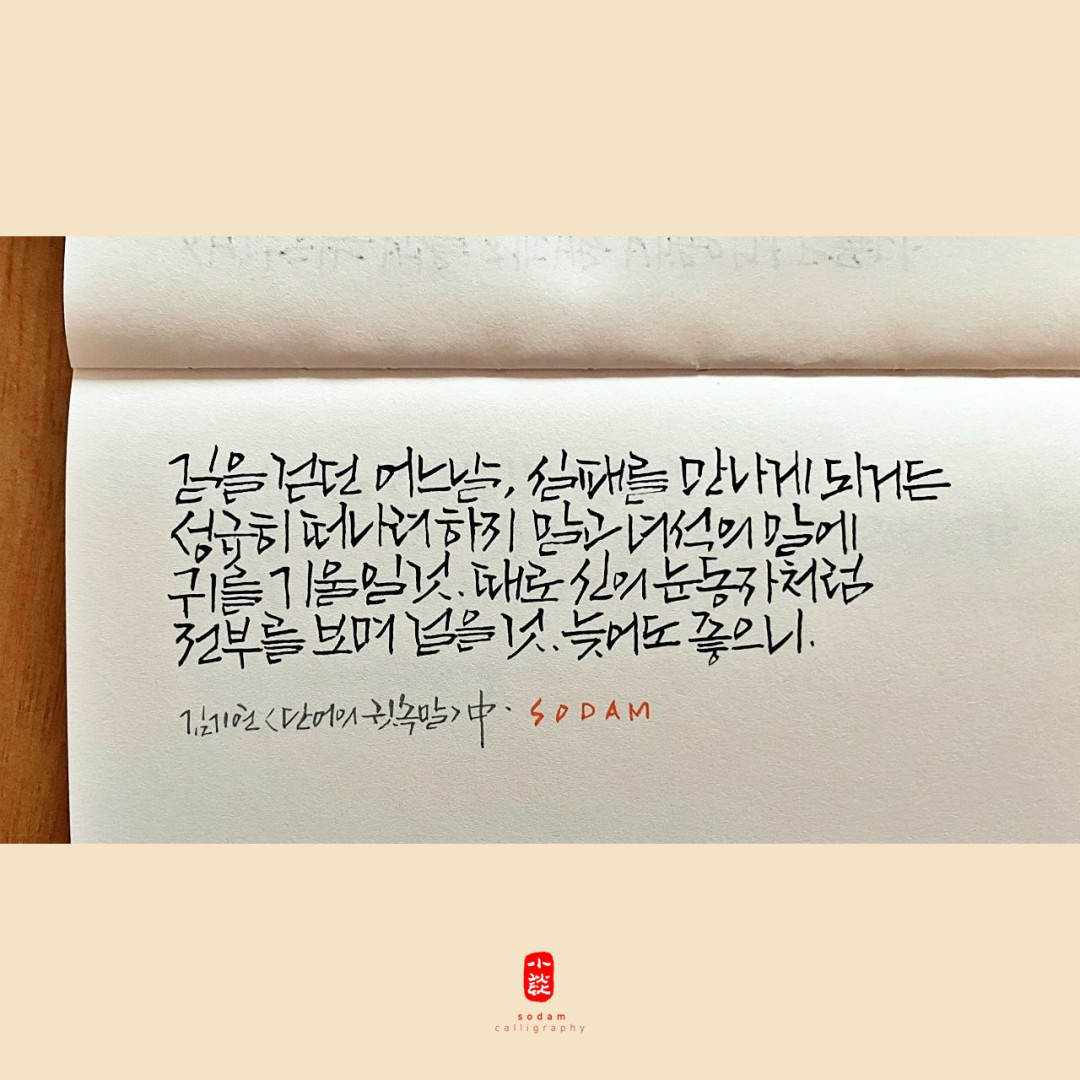 길을 걷던 어느날, 실패를 만나게 되거든
성급히 떠나려 하지 말고 녀석의 말에
귀를 기울일 것. 때로 신의 눈동자처럼
전부를 보며 걸을 것. 늦어도 좋으니.
김기연 <단어의 귓속말> 中. SODAM
小談
sodam
calligraphy